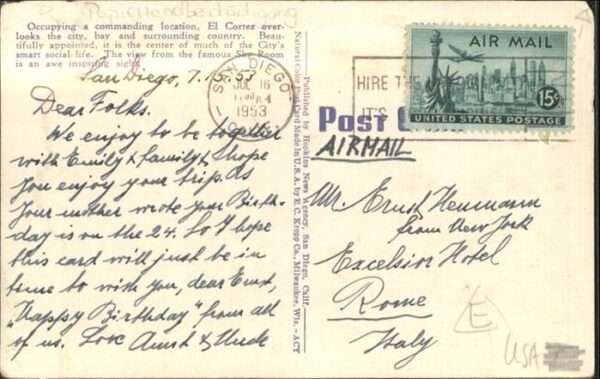 Occupying a commanding location, El Cortez over-
looks the city, bay and surrounding country. Beau-
tifully appointed, it is the center of much of the City's
smart social life. The view from the famous Sky Room
is an awe inspiring sight.
San Diego, 7.15.53
Dear Folks.
We enjoy to be together
with Emily & family & hope
you enjoy your trip. As
your mother wrote your Birth-
day is on the 24. So I hope
this card will just be in
time to wish you, dear Ernst,
"Happy Birthday" from all
of us. Love Aunt & Uncle
Published by Hopkins News Agency, San Diego, Calif.
Natural Color Post Card Made in U.S.A. by E. C. Kropp Co., Milwaukee, Wis. - ACT
SAN DIEGO
JUL 16
1953
HIRE THE
IT'S
AIR MAIL
15¢
UNITED STATES POSTAGE
Post
AIRMAIL
Mr. Ernst Heumann
from New York
Excelsior Hotel
Rome
Italy
E
USA